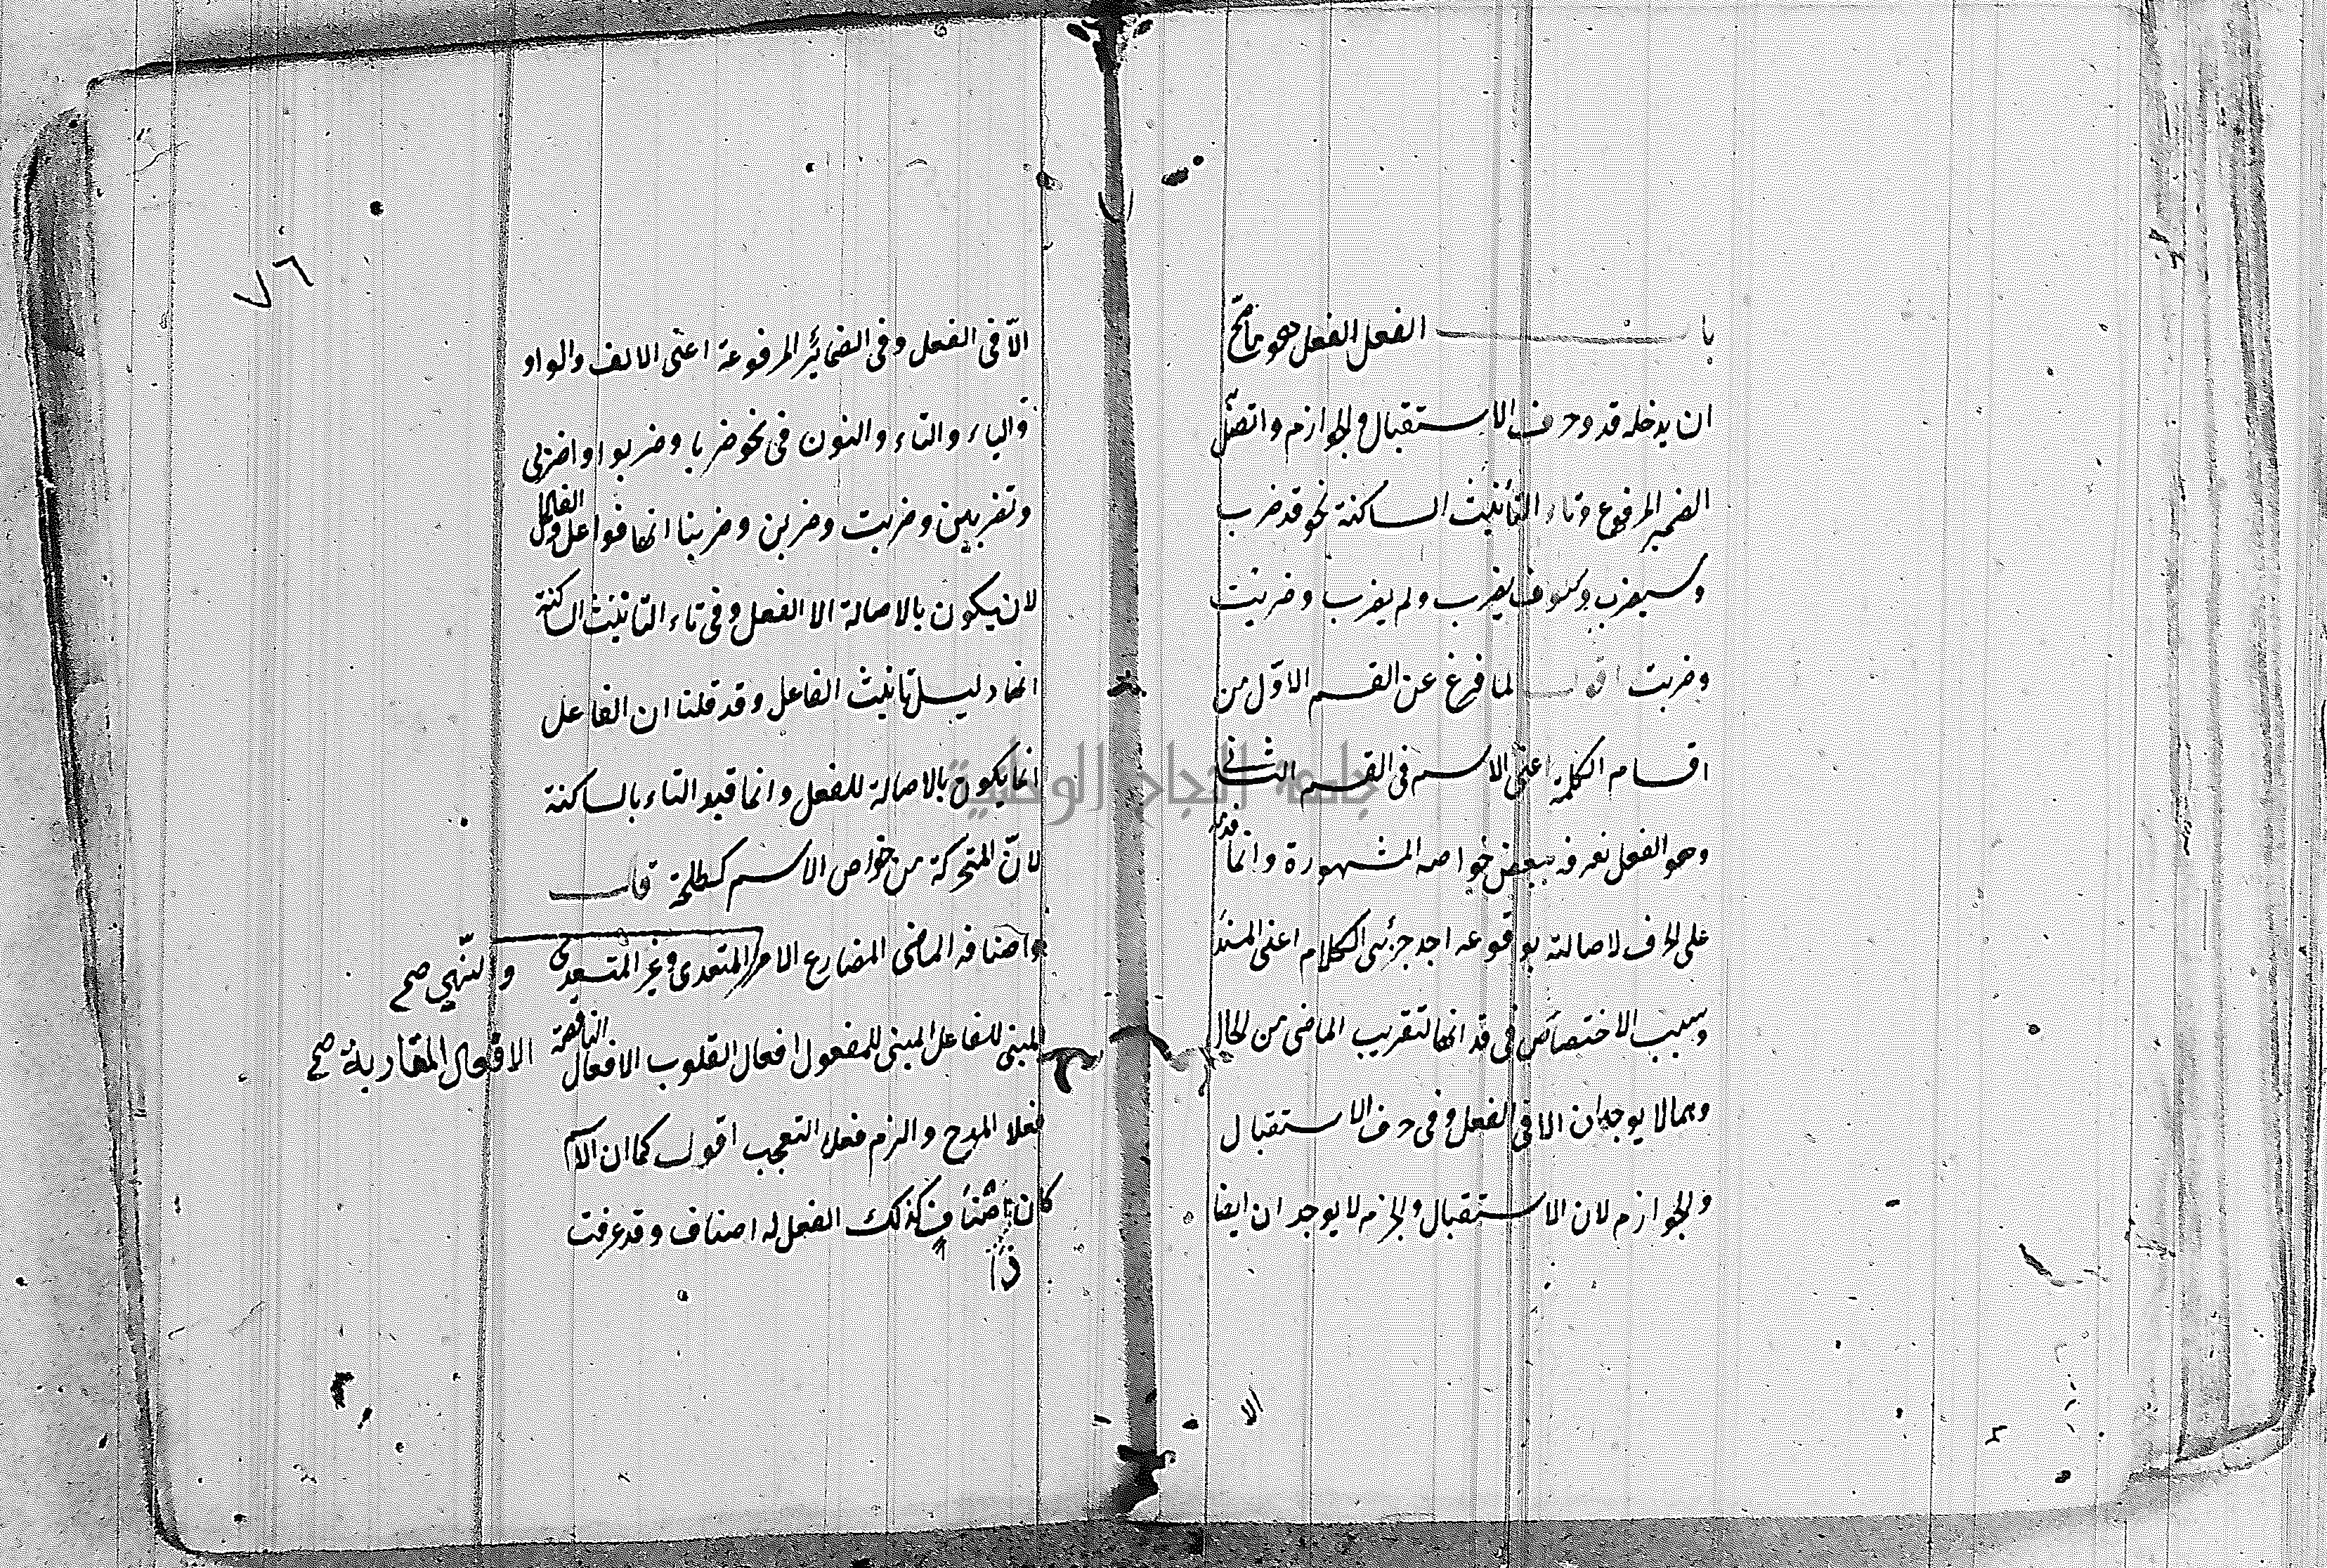 باب الفعل الفعل هو ما صح
ان يدخله قد وحرف الاستقبال والجوازم واتصل
الضمير المرفوع وتاء التأنيث الساكنة نحو قد ضرب
وسيضرب وسوف يضرب ولم يضرب وضربت
وضربت اقول لما فرغ عن القسم الاوّل من
اقسام الكلمة اعنى الاسم فى القسم الثانى
وهو الفعل نعرفه ببعض خواصه المشهورة وانما قدمه
على الحرف لاصالته بوقوعه احد جزئى الكلام اعنى المسند
وسبب الاختصاص فى قد انها لتقريب الماضى من الحال
وهما لا يوجدان الا فى الفعل وفى حرف الاستقبال
والجوازم لان الاستقبال والجزم لا يوجدان ايضا
الا
٧٦
الّا فى الفعل وفى الضمائر المرفوعة اعنى الالف والواو
والياء والتاء والنون فى نحو ضربا وضربوا واضربى
وتضربين وضربت وضربن وضربنا انها فواعل والفاعل
لان يكون بالاصالة الا الفعل وفى تاء التانيث الساكنة
انها دليل تانيث الفاعل وقد قلنا ان الفاعل
انما يكون بالاصالة للفعل وانما قيد التاء بالساكنة
لانّ المتحركة من خواص الاسم كطلحة قال
واصنافه الماضى المضارع الامر المتعدى وغير المتعدى
والنّهي صح
المبنى للفاعل المبنى للمفعول افعال القلوب الافعال الناقصة
الافعال المقاربة صح
فعلا المدح والذم فعلا التعجب اقول كما ان الاسم
كان اصناف كذلك الفعل له اصناف وقد عرفت
جامعة النجاح الوطنية